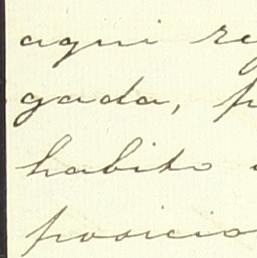 aqui re
gada, p
habito
posicio